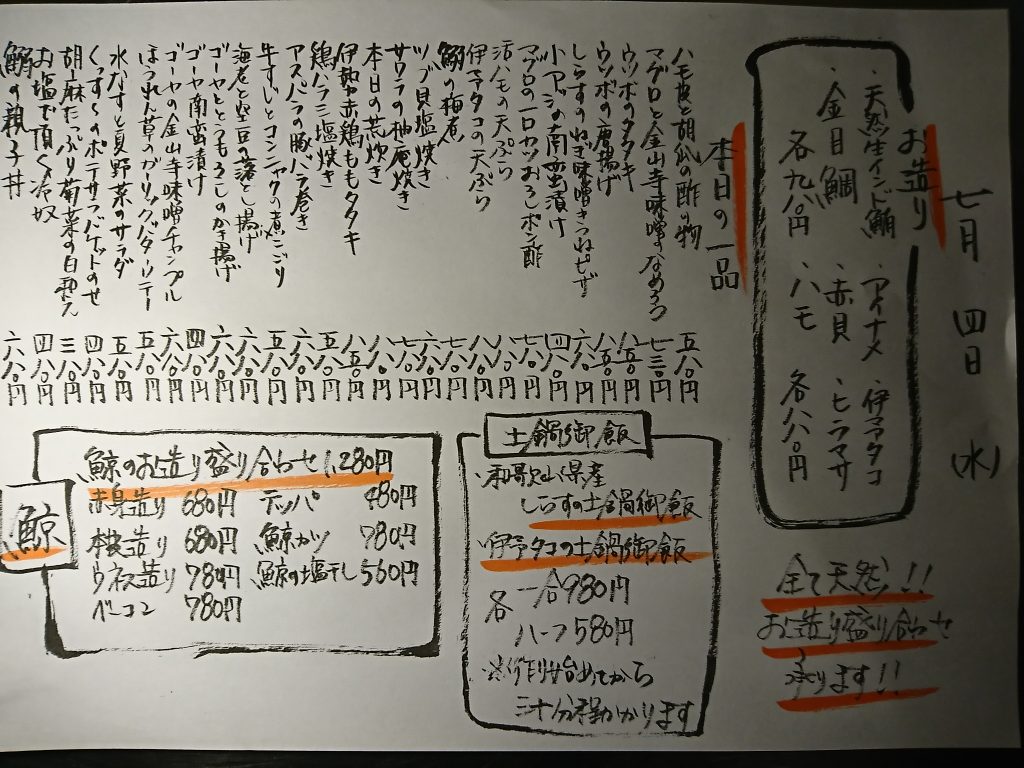 七月 四日 (水)
お造り
・天然生インド鮪 ・アイナメ ・伊予タコ
・金目鯛 ・赤貝 ・ヒラマサ
各九八〇円 ・ハモ 各八八〇円
全て天然!!
お造り盛り合わせ
承ります!!
本日の一品
ハモ皮と胡瓜の酢の物 五八〇円
マグロと金山寺味噌のなめろう 七三〇円
ウツボのタタキ 八五〇円
ウツボの唐揚げ 八五〇円
しらすのねぎ味噌きつねピザ 六八〇円
小アジの南蛮漬け 四八〇円
マグロの一口カツおろしポン酢 七八〇円
活ハモの天ぷら 八八〇円
伊予タコの天ぷら 八八〇円
鰯の梅煮 七八〇円
ツブ貝塩焼き 七八〇円
サワラの柚庵焼き 七八〇円
本日の荒炊き 八八〇円
伊勢赤鶏ももタタキ 八五〇円
鶏バラ塩焼き 五八〇円
アスパラの豚バラ巻き 五八〇円
牛すじとコンニャクの煮こごり 六八〇円
海老と空豆の落とし揚げ 六八〇円
ゴーヤととうもろこしのかき揚げ 六八〇円
ゴーヤ南蛮漬け 四八〇円
ゴーヤの金山寺味噌チャンプル 六八〇円
ほうれん草のガーリックバターソテー 五八〇円
水なすと夏野菜のサラダ 五八〇円
くっす〜のポテサラバゲットのせ 四八〇円
胡麻たっぷり菊菜の白和え 三八〇円
お塩で頂く冷奴 四八〇円
鮪の親子丼 六八〇円
土鍋御飯
・和歌山県産
しらすの土鍋御飯
・伊予タコの土鍋御飯
各 一合980円
ハーフ580円
※作り始めてから
三十分程かかります
鯨
・鯨のお造り盛り合わせ 1,280円
・赤身造り 680円 ・テッパ 480円
・本皮造り 680円 ・鯨カツ 780円
・ウネス造り 780円 ・鯨の塩干し 560円
・ベーコン 780円